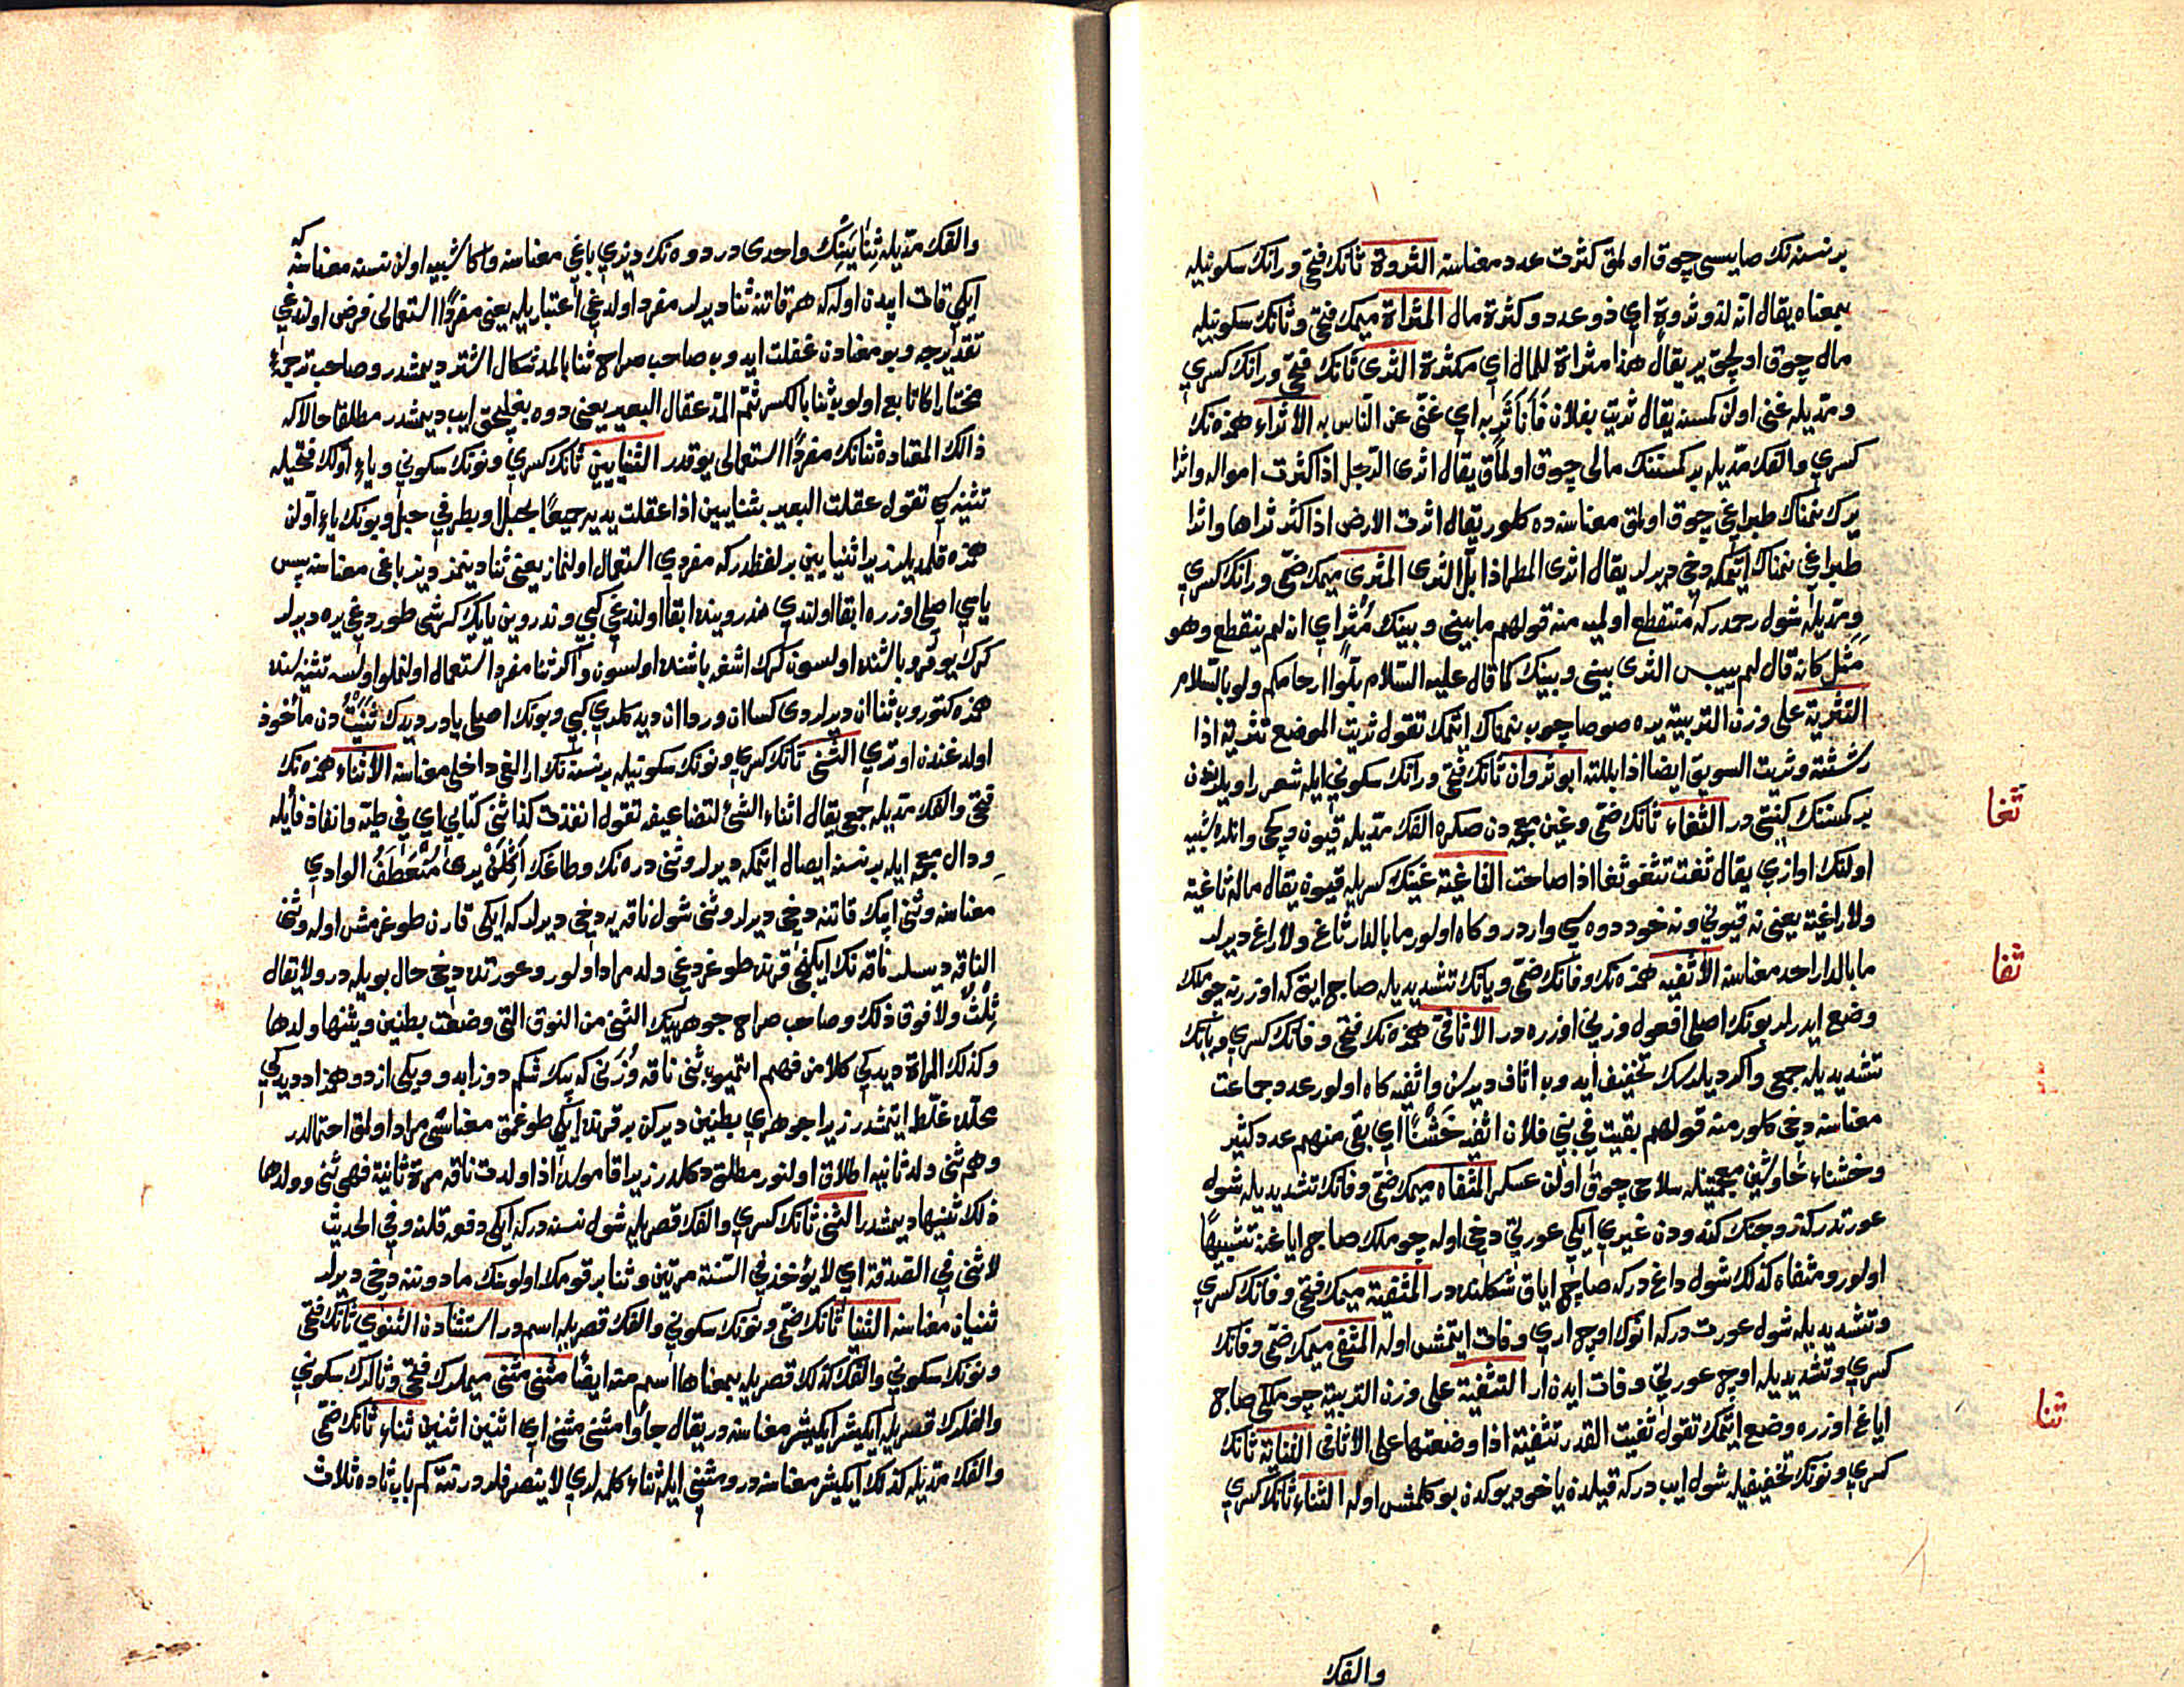 برنسنه نك صايسى چوق اولمق كثرت عدد معناسنه الثروة ثانك فتحى و رانك سكونيله
بمعناه يقال انه لذو ثروة اي ذو عدد و كثرة مال المثراة ميمك فتحى و ثانك سكونيله
مال چوق اوله جق ير يقال هذا مثراة للمال اي مكثرة الثرى ثانك فتحى و رانك كسري
و مدّيله غنى اولن كمسنه يقال ثريت بفلان فأنا ثرٍ به اي غنى عن الناس به الاثراء همزه نك
كسري و الفك مدّيله بر كمسنه نك مالى چوق اولماق يقال اثرى الرجل اذا كثرت امواله و اثرا
يرك نمناك طپراغى چوق اولمق معناسنه ده كلور يقال اثرت الارض اذا كثر ثراها و اثرا
طپراغى نمناك ايتمكه دخى ديرلر يقال اثرى المطر اذا بلّ الثرى المثرى ميمك ضمّى و رانك كسري
و مدّيله شول رحمدر كه منقطع اولميه منه قولهم ما بينى و بينك مُثْرٍ اي انه لم ينقطع و هو
مَثَل كانه قال لم ييبس الثرى بينى و بينك كما قال عليه السّلام بلّوا ارحامكم و لو بالسّلام
التثرية على وزن التربية يره صو صاچوب نمناك ايتمك تقول ثريت الموضع تثرية اذا
رششته و ثريت السويق ايضا اذا بللته ابو ثروان ثانك فتحى و رانك سكونى ايله شعر راويلرندن
بر كمسنه نك كنيتى در الثغاء ثانك ضمّى و غين معجمه دن صكره الفك مدّيله قيون و كچى و انلره شبيه
اولنك اوازي يقال ثغت تثغو ثغا اذا صاحت الثاغية غينك كسريله قيون يقال ماله ثاغية
ولا راغية يعنى نه قيونى و نه خود دوه سي واردر و كاه اولور ما بالدار ثاغ ولا راغ ديرلر
ما بالدار احد معناسنه الأثفيه همزه نك و فانك ضمّى و يانك تشديديله صاج اياق كه اوزرينه چوملك
وضع ايدرلر بونك اصلى افعول وزنى اوزره در الاثافى همزه نك فتحى و فانك كسري و يانك
تشديديله جمعى و اكر ديلرسك تخفيف ايدوب اثاف ديرسن و اثفيه كاه اولور عدد جماعت
معناسنه دخى كلور منه قولهم بقيت في بني فلان اثفيه خشناء اي بقي منهم عدد كثير
و خشناء خا و شين معجمتينله سلاحى چوق اولن عسكر المثفاه ميمك ضمّى و فانك تشديديله شول
عورتدر كه زوجنك كندودن غيري ايكى عورتى دخى اوله چوملك صاج اياغنه تشبيهاً
اولور و مثفاه كذلك شول داغ در كه صاج اياق شكلنده در المثفية ميمك فتحى و فانك كسري
و تشديديله شول عورت در كه انوك اوچ اري وفات ايتمش اوله المثفى ميمك ضمّى و فانك
كسري و تشديديله اوچ عورتى وفات ايدن ار التثفية على وزن التربية چوملكى صاج
اياغ اوزره وضع ايتمك تقول ثفيت القدر تثفية اذا وضعتها على الاثافى الثناية ثانك
كسري و نونك تخفيفيله شول ايب در كه قيلدن ياخود يوكدن بوكلمش اوله الثناء ثانك كسري
والفك
ثغا
ثفا
ثنا
والفك مدّيله ثِنَايَيْنك واحدى در دوه نك ديزي باغى معناسنه و اكا شبيه اولن نسنه معناسنه كه
ايكى قات ايپدن اوله كه هر قاتنه ثنا ديرلر مفرد اولدغى اعتباريله يعنى مفرداً استعمالى فرض اولندغى
تقديرجه و بو معنادن غفلت ايدوب صاحب صراح ثنا بالمد شكال اشتر ديمشدر و صاحب ترجمهٔ
مختار اكا تابع اولوب ثنا بالكسر ثم المدّ عقال البعير يعنى دوه بغله جق ايب ديمشدر مطلقا حالا كه
ذالك المقناده ثنانك مفرداً استعمالى يوقدر الثنايين ثانك كسري و نونك سكونى و ياء اولك فتحيله
تثنيه سي تقول عقلت البعير بثنايين اذا عقلت يديه جميعاً بحبل او بطرفي حبل و بونك ياء اولن
همزه قلمديلر زيرا ثنايين بر لفظدر كه مفردي استعمال اولنماز يعنى ثنا دينمز ديز باغى معناسنه پس
ياسي اصلى اوزره ابقا اولندي مذروينده ابقا اولندغى كبى و مذروين يايك كرشى طوردغى يره ديرلر
كرك يوقرو باشنده اولسون كرك اشغه باشنده اولسون و اكر ثنا مفرد استعمال اولنملو اولسه تثنيه سنده
همزه كتوروب ثناان ديرلردى كساان و رداان ديدكلري كبى و بونك اصلى يادر ديدك ثَنَيْتُ دن مأخوذ
اولدغندن اوتري الثنى ثانك كسري و نونك سكونيله بر نسنه نك ارالغى داخلى معناسنه الاثناء همزه نك
فتحى والفك مدّيله جمعى يقال اثناء الشئ لتضاعيفه تقول انفذت كذا ثنى كتابى اي في طيّه و انفاذ فا ايله
و دال معجمه ايله بر نسنه ايصال ايتمكه ديرلر و ثنى دره نك و طاغك اكلن يرى مُنْعَطَف الوادي
معناسنه و ثنى ايپك قاتنه دخى ديرلر و ثنى شول ناقه يه دخى ديرلر كه ايكى قارن طوغرمش اوله و ثنى
الناقه ديسلر ناقه نك ايكنجى قرنده طوغردغى ولد مراد اولور و عورتده دخى حال بويله در و لا يقال
ثِلْثٌ ولا فوق ذلك و صاحب صراح جوهرينك الثنى من النوق التى وضعت بطنين و ثنيها ولدها
و كذلك المرأة ديدكى كلامن فهم ايتميوب ثنى ناقه و زنى كه بيك شكم دو زايد و ويكى از دو همزاد ديدكى
محلده غلط ايتمشدر زيرا جوهرى بطنين ديركن بر قرنده ايكى طوغمق معناسى مراد اولمق احتمالدر
وهم ثنى ولد ثانيه اطلاق اولنور مطلق دكلدر زيرا قاموسده اذا ولدت ناقه مرة ثانية فهى ثنى و ولدها
ذلك ثنيها ديمشدر الثنى ثانك كسري و الفك قصريله شول نسنه در كه ايكى دفعه قلنه و في الحديث
لا ثنى في الصدقة اي لا يؤخذ في السّنة مرّتين و ثنا بر قومك اولوسنك مادوننه دخى ديرلر
ثنيان معناسنه الثنيا ثانك ضمّى و نونك سكونى والفك قصريله اسم در استثنادن الثنوي ثانك فتحى
و نونك سكونى والفك كذلك قصريله بمعناها اسم منه ايضاً مثنى مثنى ميملرك فتحى و ثالرك سكونى
والفلرك قصريله ايكيشر ايكيشر معناسنه در يقال جاؤا مثنى مثنى اي اثنين اثنين ثناء ثانك ضمّى
والفك مدّيله كذلك ايكيشر معناسنه در و مثنى ايله ثناء كلمه لري لا ينصرفلدر نته كم باب ثاده ثلاث